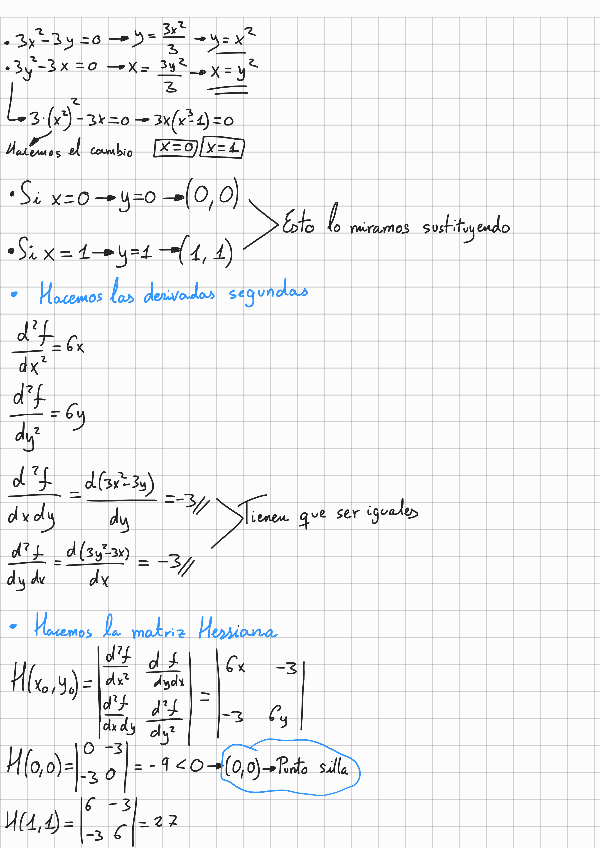 • 3x² - 3y = 0 → y = 3x²/3 → y = x²
• 3y² - 3x = 0 → x = 3y²/3 → x = y²
↳ 3·(x²)² - 3x = 0 → 3x(x³ - 1) = 0
Hacemos el cambio x = 0 x = 1
• Si x = 0 → y = 0 → (0, 0)
Esto lo miramos sustituyendo
• Si x = 1 → y = 1 → (1, 1)
• Hacemos las derivadas segundas
d²f/dx² = 6x
d²f/dy² = 6y
d²f/dxdy = d(3x²-3y)/dy = -3//
Tienen que ser iguales
d²f/dydx = d(3y²-3x)/dx = -3//
• Hacemos la matriz Hessiana
H(x₀, y₀) = |d²f/dx² d f/dydx; d²f/dxdy d²f/dy²| = |6x -3; -3 6y|
H(0,0) = |0 -3; -3 0| = -9 < 0 → (0,0) → Punto silla
H(1,1) = |6 -3; -3 6| = 27